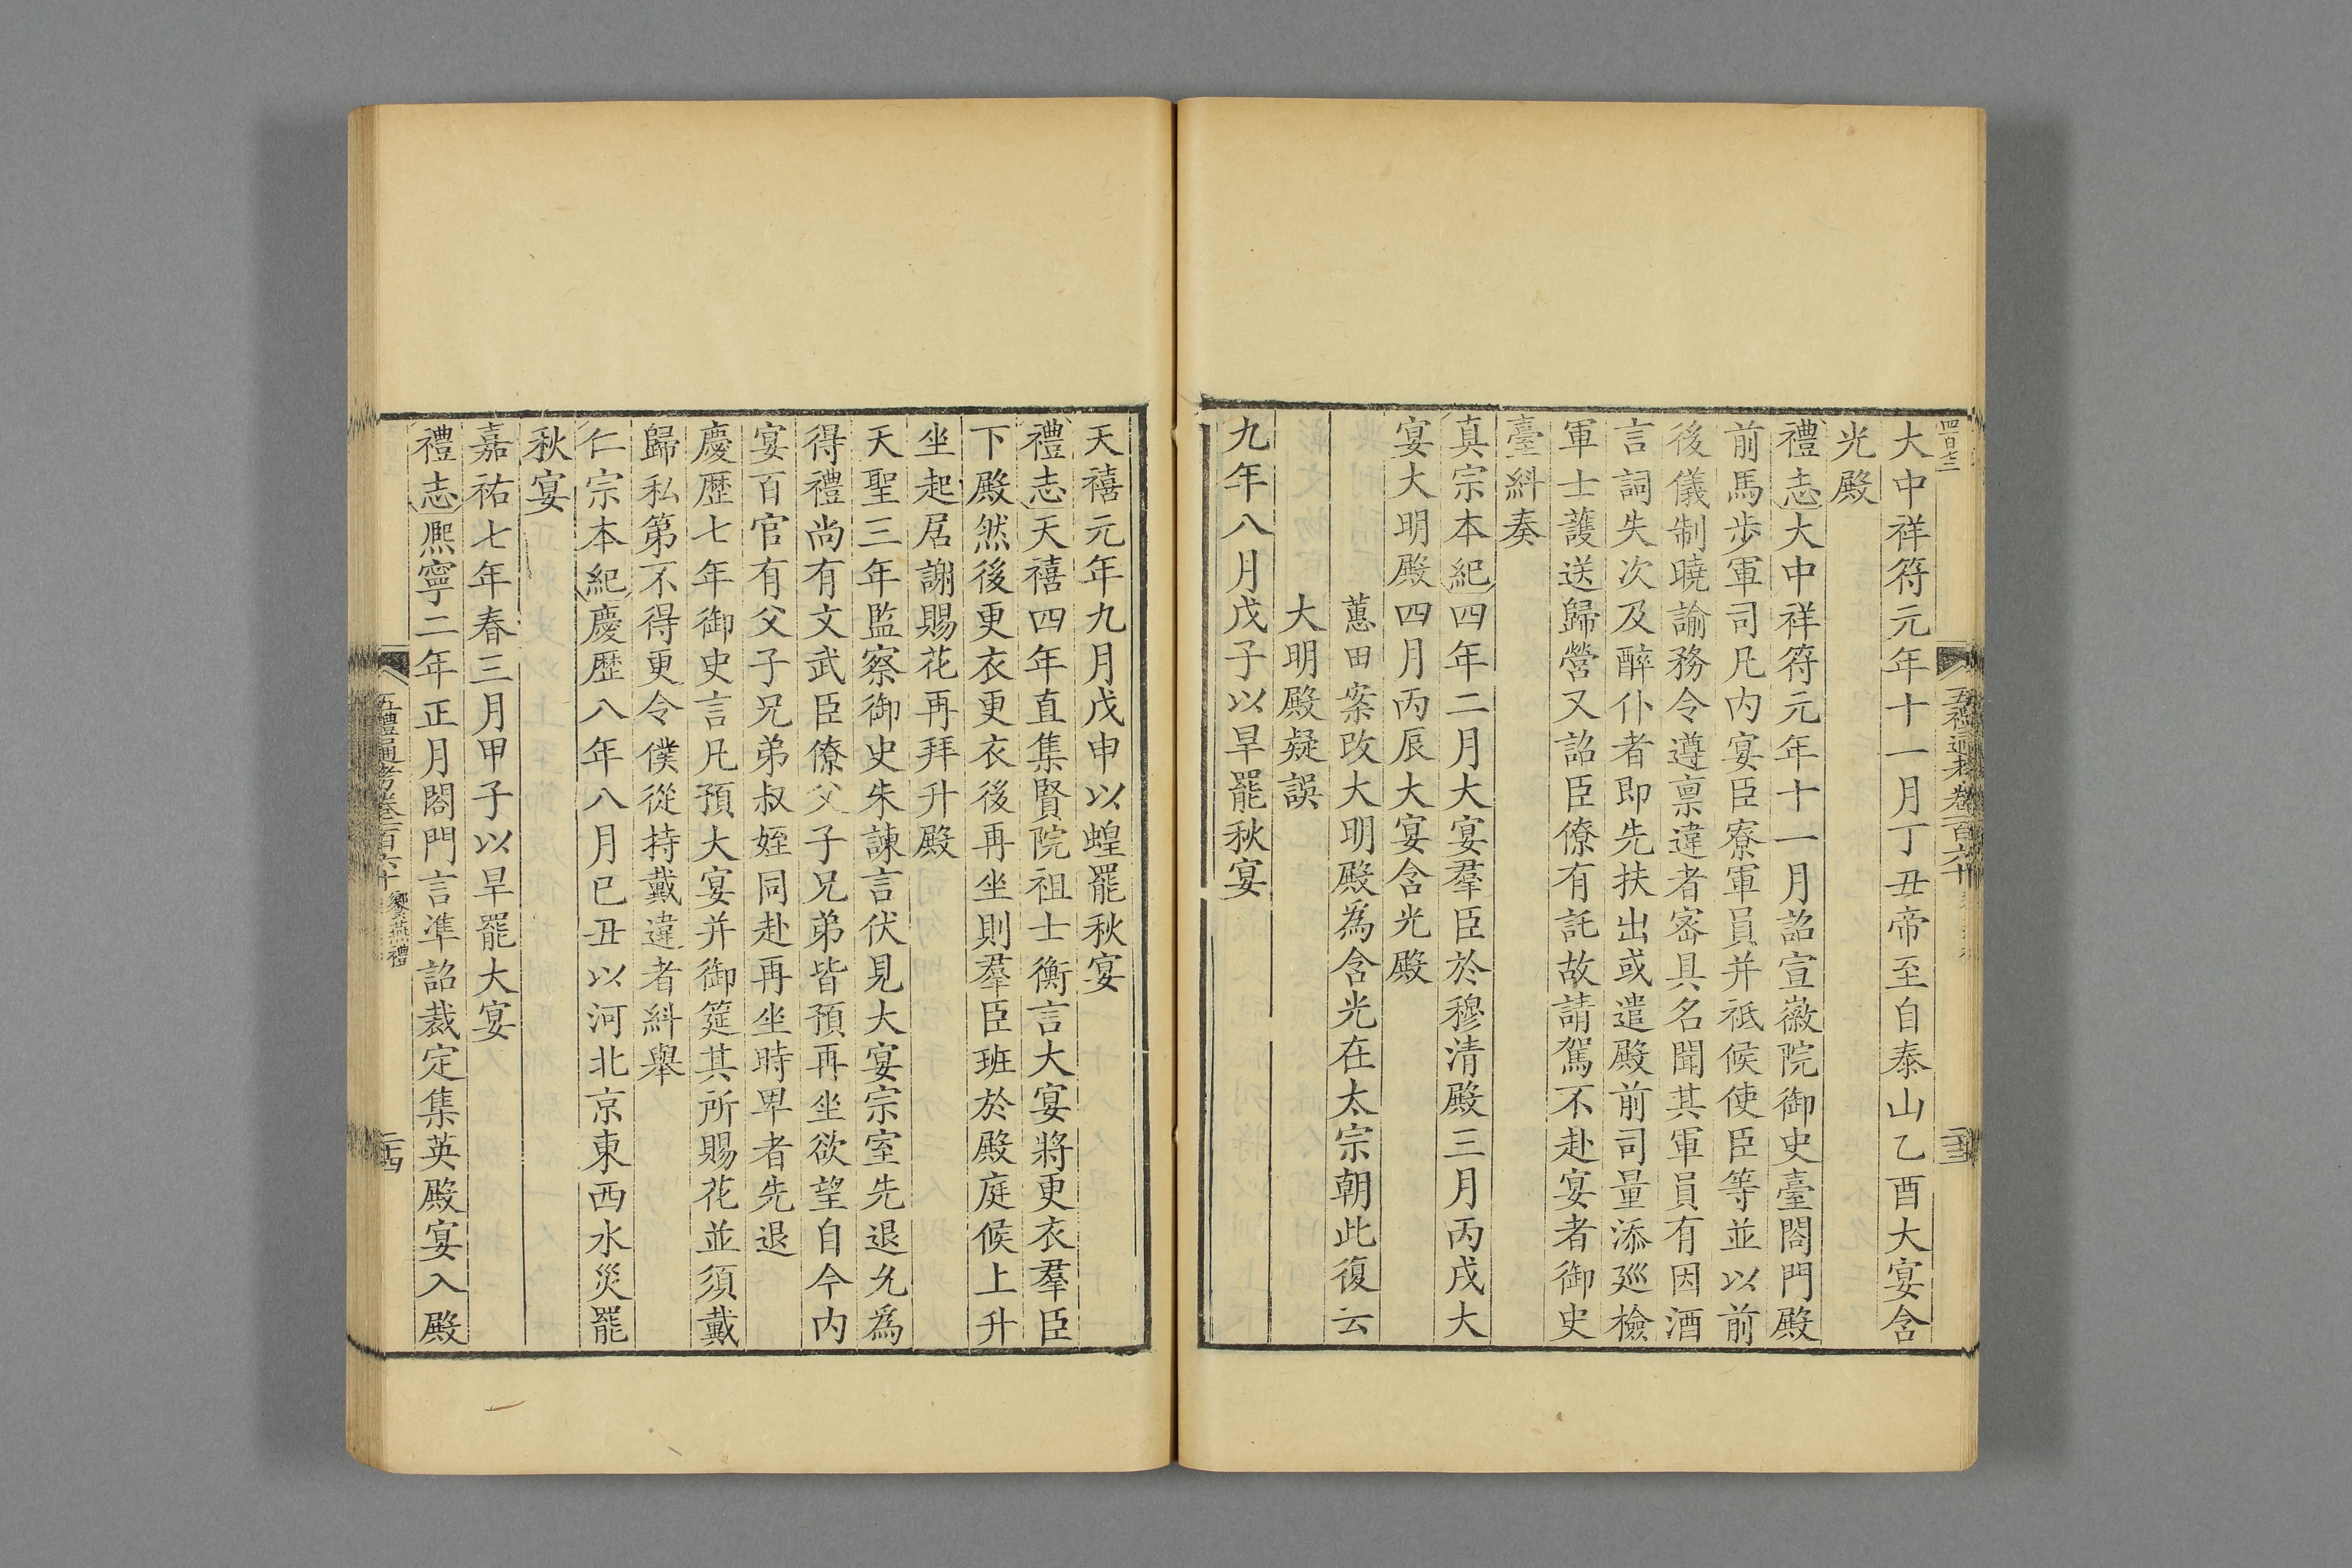 大中祥符元年十一月丁丑帝至自泰山乙酉大宴含
光殿
禮志大中祥符元年十一月詔宣徽院御史臺閤門殿
前馬步軍司凡内宴臣寮軍員并祗候使臣等並以前
後儀制曉諭務令遵稟違者宻具名聞其軍員有因酒
言詞失次及醉仆者即先扶出或遣殿前司量添廵檢
軍士護送歸營又詔臣僚有託故請駕不赴宴者御史
臺糾奏
真宗本紀四年二月大宴羣臣於穆清殿三月丙戌大
宴大明殿四月丙辰大宴含光殿
蕙田案改大明殿爲含光在太宗朝此復云
大明殿疑誤
九年八月戊子以旱罷秋宴
天禧元年九月戊申以蝗罷秋宴
禮志天禧四年直集賢院祖士衡言大宴將更衣羣臣
下殿然後更衣更衣後再坐則羣臣班於殿庭候上升
坐起居謝賜花再拜升殿
天聖三年監察御史朱諫言伏見大宴宗室先退允爲
得禮尚有文武臣僚父子兄弟皆預再坐欲望自今内
宴百官有父子兄弟叔姪同赴再坐時卑者先退
慶歷七年御史言凡預大宴并御筵其所賜花並須戴
歸私第不得更令僕從持戴違者糾舉
仁宗本紀慶歷八年八月已丑以河北京東西水災罷
秋宴
嘉祐七年春三月甲子以旱罷大宴
禮志熈寧二年正月閤門言凖詔裁定集英殿宴入殿
五禮通考卷一百六十 饗燕禮
二十四